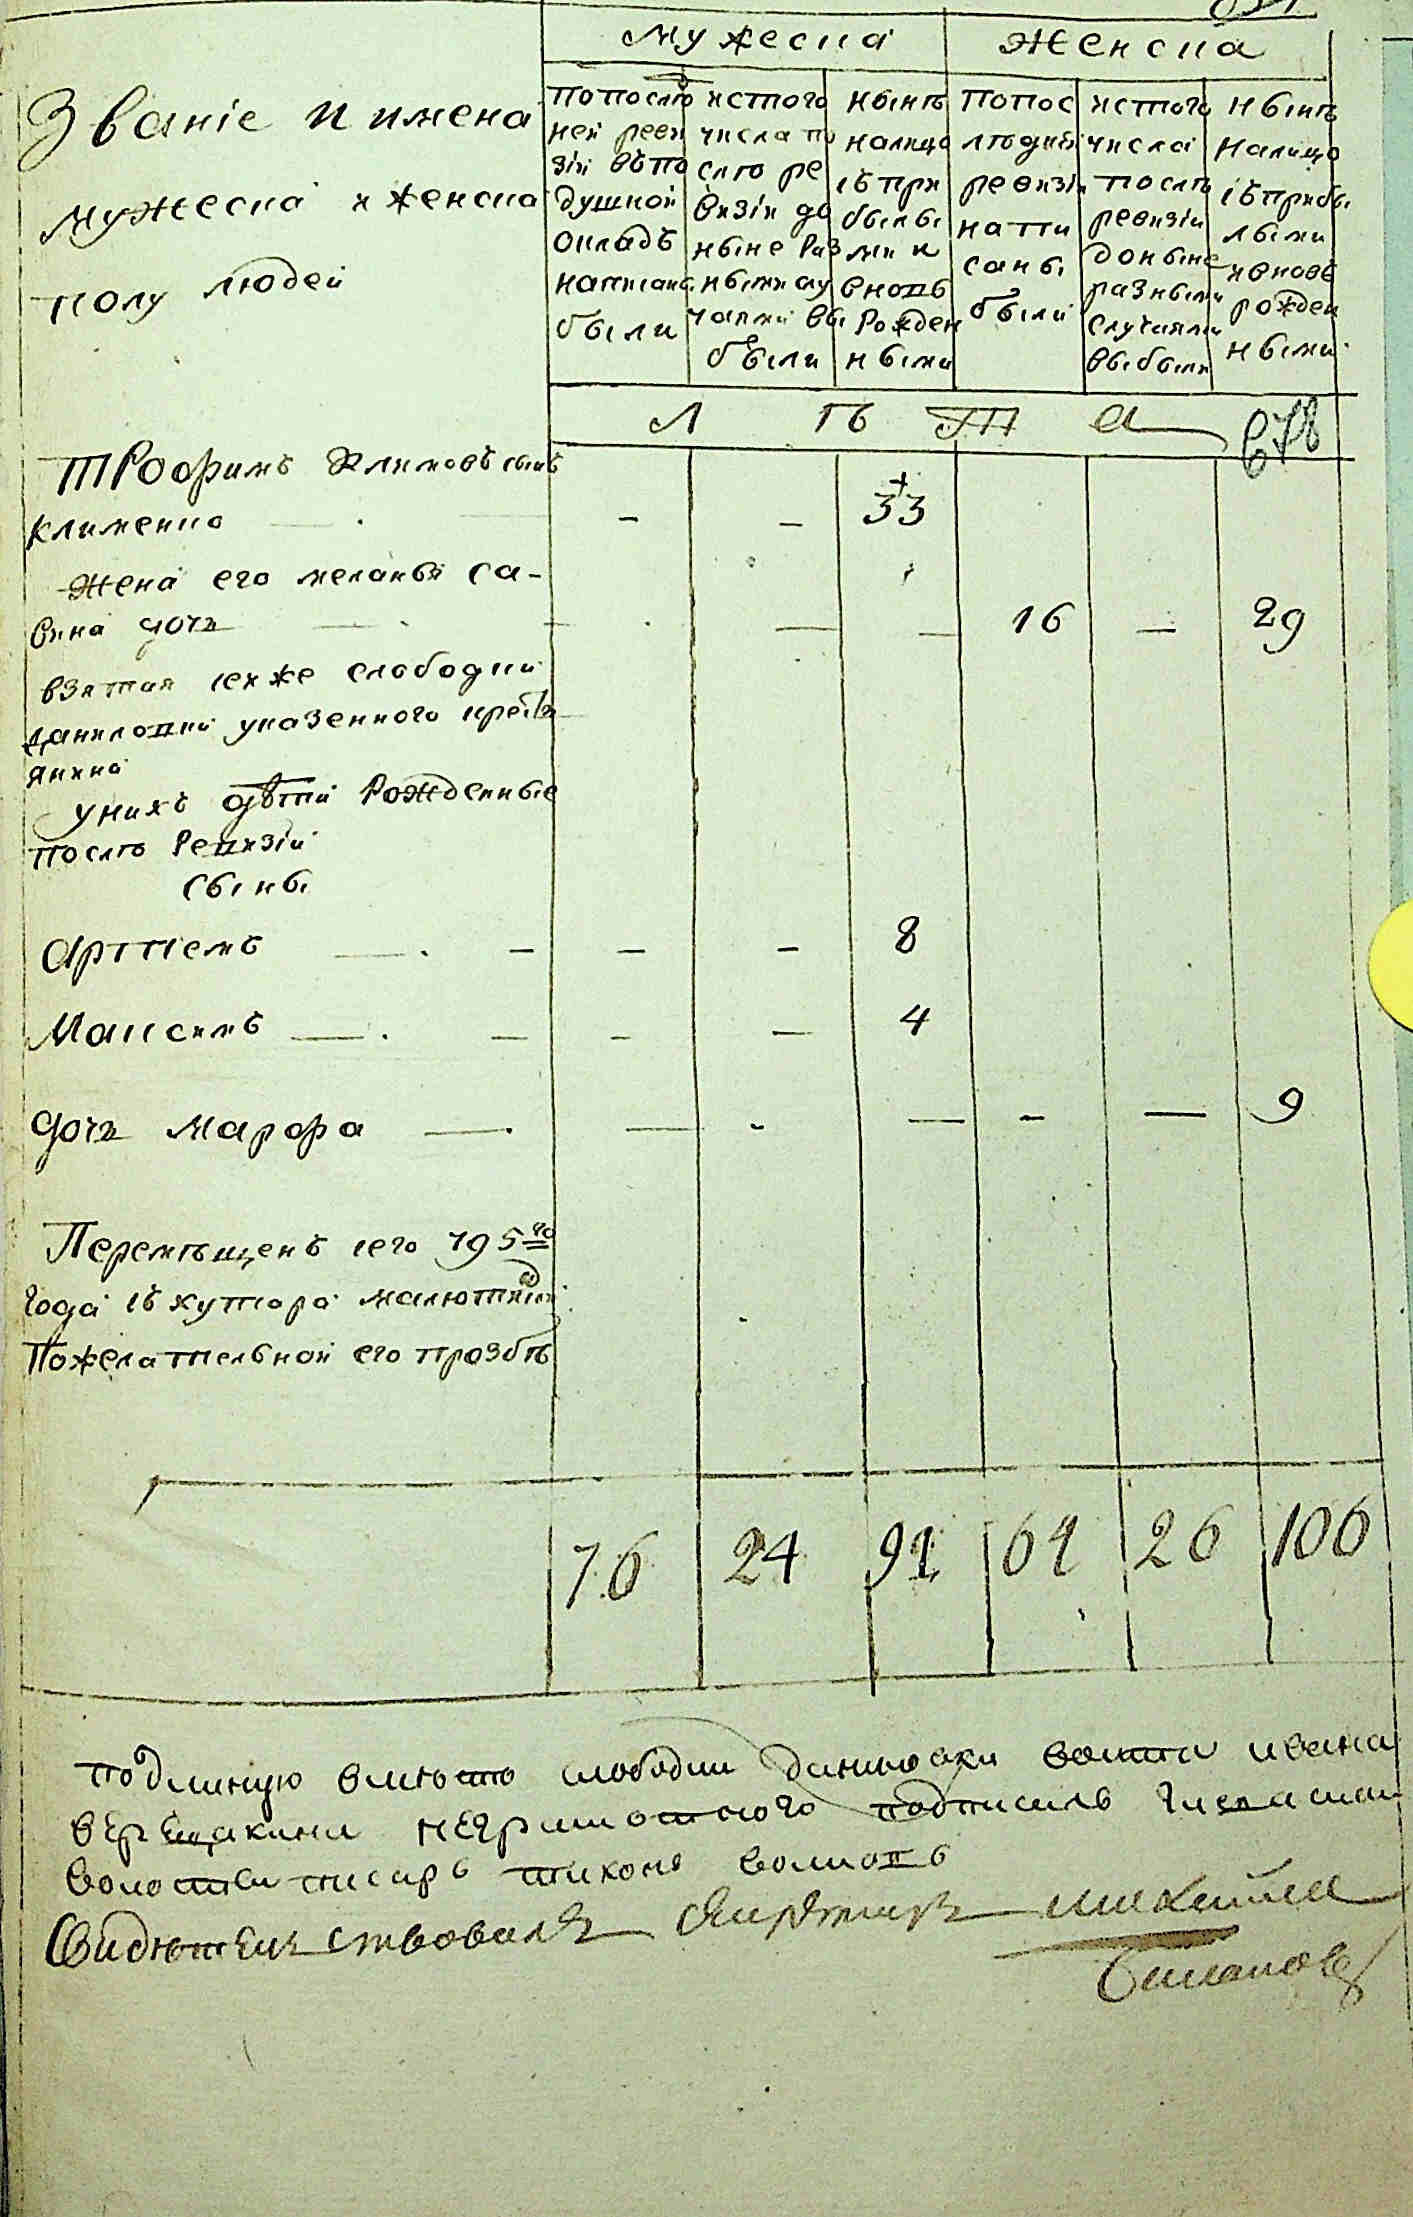 Мужеска Женска
Званіе и имена
мужеска и женска
полу людей
по послѣд
ней реви
зіи въ по
душной
окладъ
написаны
были
ис того
числа по
слѣ ре
визіи до
ныне раз
ными слу
чаями вы
были
нынѣ
налицо
съ при
былы
ми и
вновь
рожден
ными
по пос
лѣдней
ревизіи
напи
саны
были
ис того
числа
послѣ
ревизіи
до ныне
разными
случаями
выбыли
нынѣ
налицо
съ прибы
лыми
и вновь
рожден
ными
Л ѣ т а
Трофимъ Климовъ сынъ
Клименко - - 33
Жена его меланья са-
вина дочь 16 — 29
взятая сея же слободки
даниловки указенного кресть
янина
у нихъ дѣти рожденные
послѣ ревизіи
сыны
Артіемъ - - 8
Максимъ - - 4
дочь Марфа — - — - — 9
Перемѣщенъ сего 795го
года съ хутора малютина
по желательной его прозбѣ
76 24 91 64 26 106
подлинную вместо слободки даниловки воита ивана
верещакина неграмотного подписалъ
волости писарь тихонъ
Свидетельствовалъ